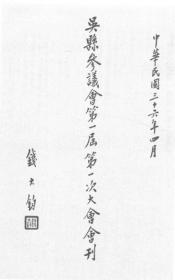 中華民國三十六年四月
吳縣參議會第一屆第一次大會會刊
錢大鈞